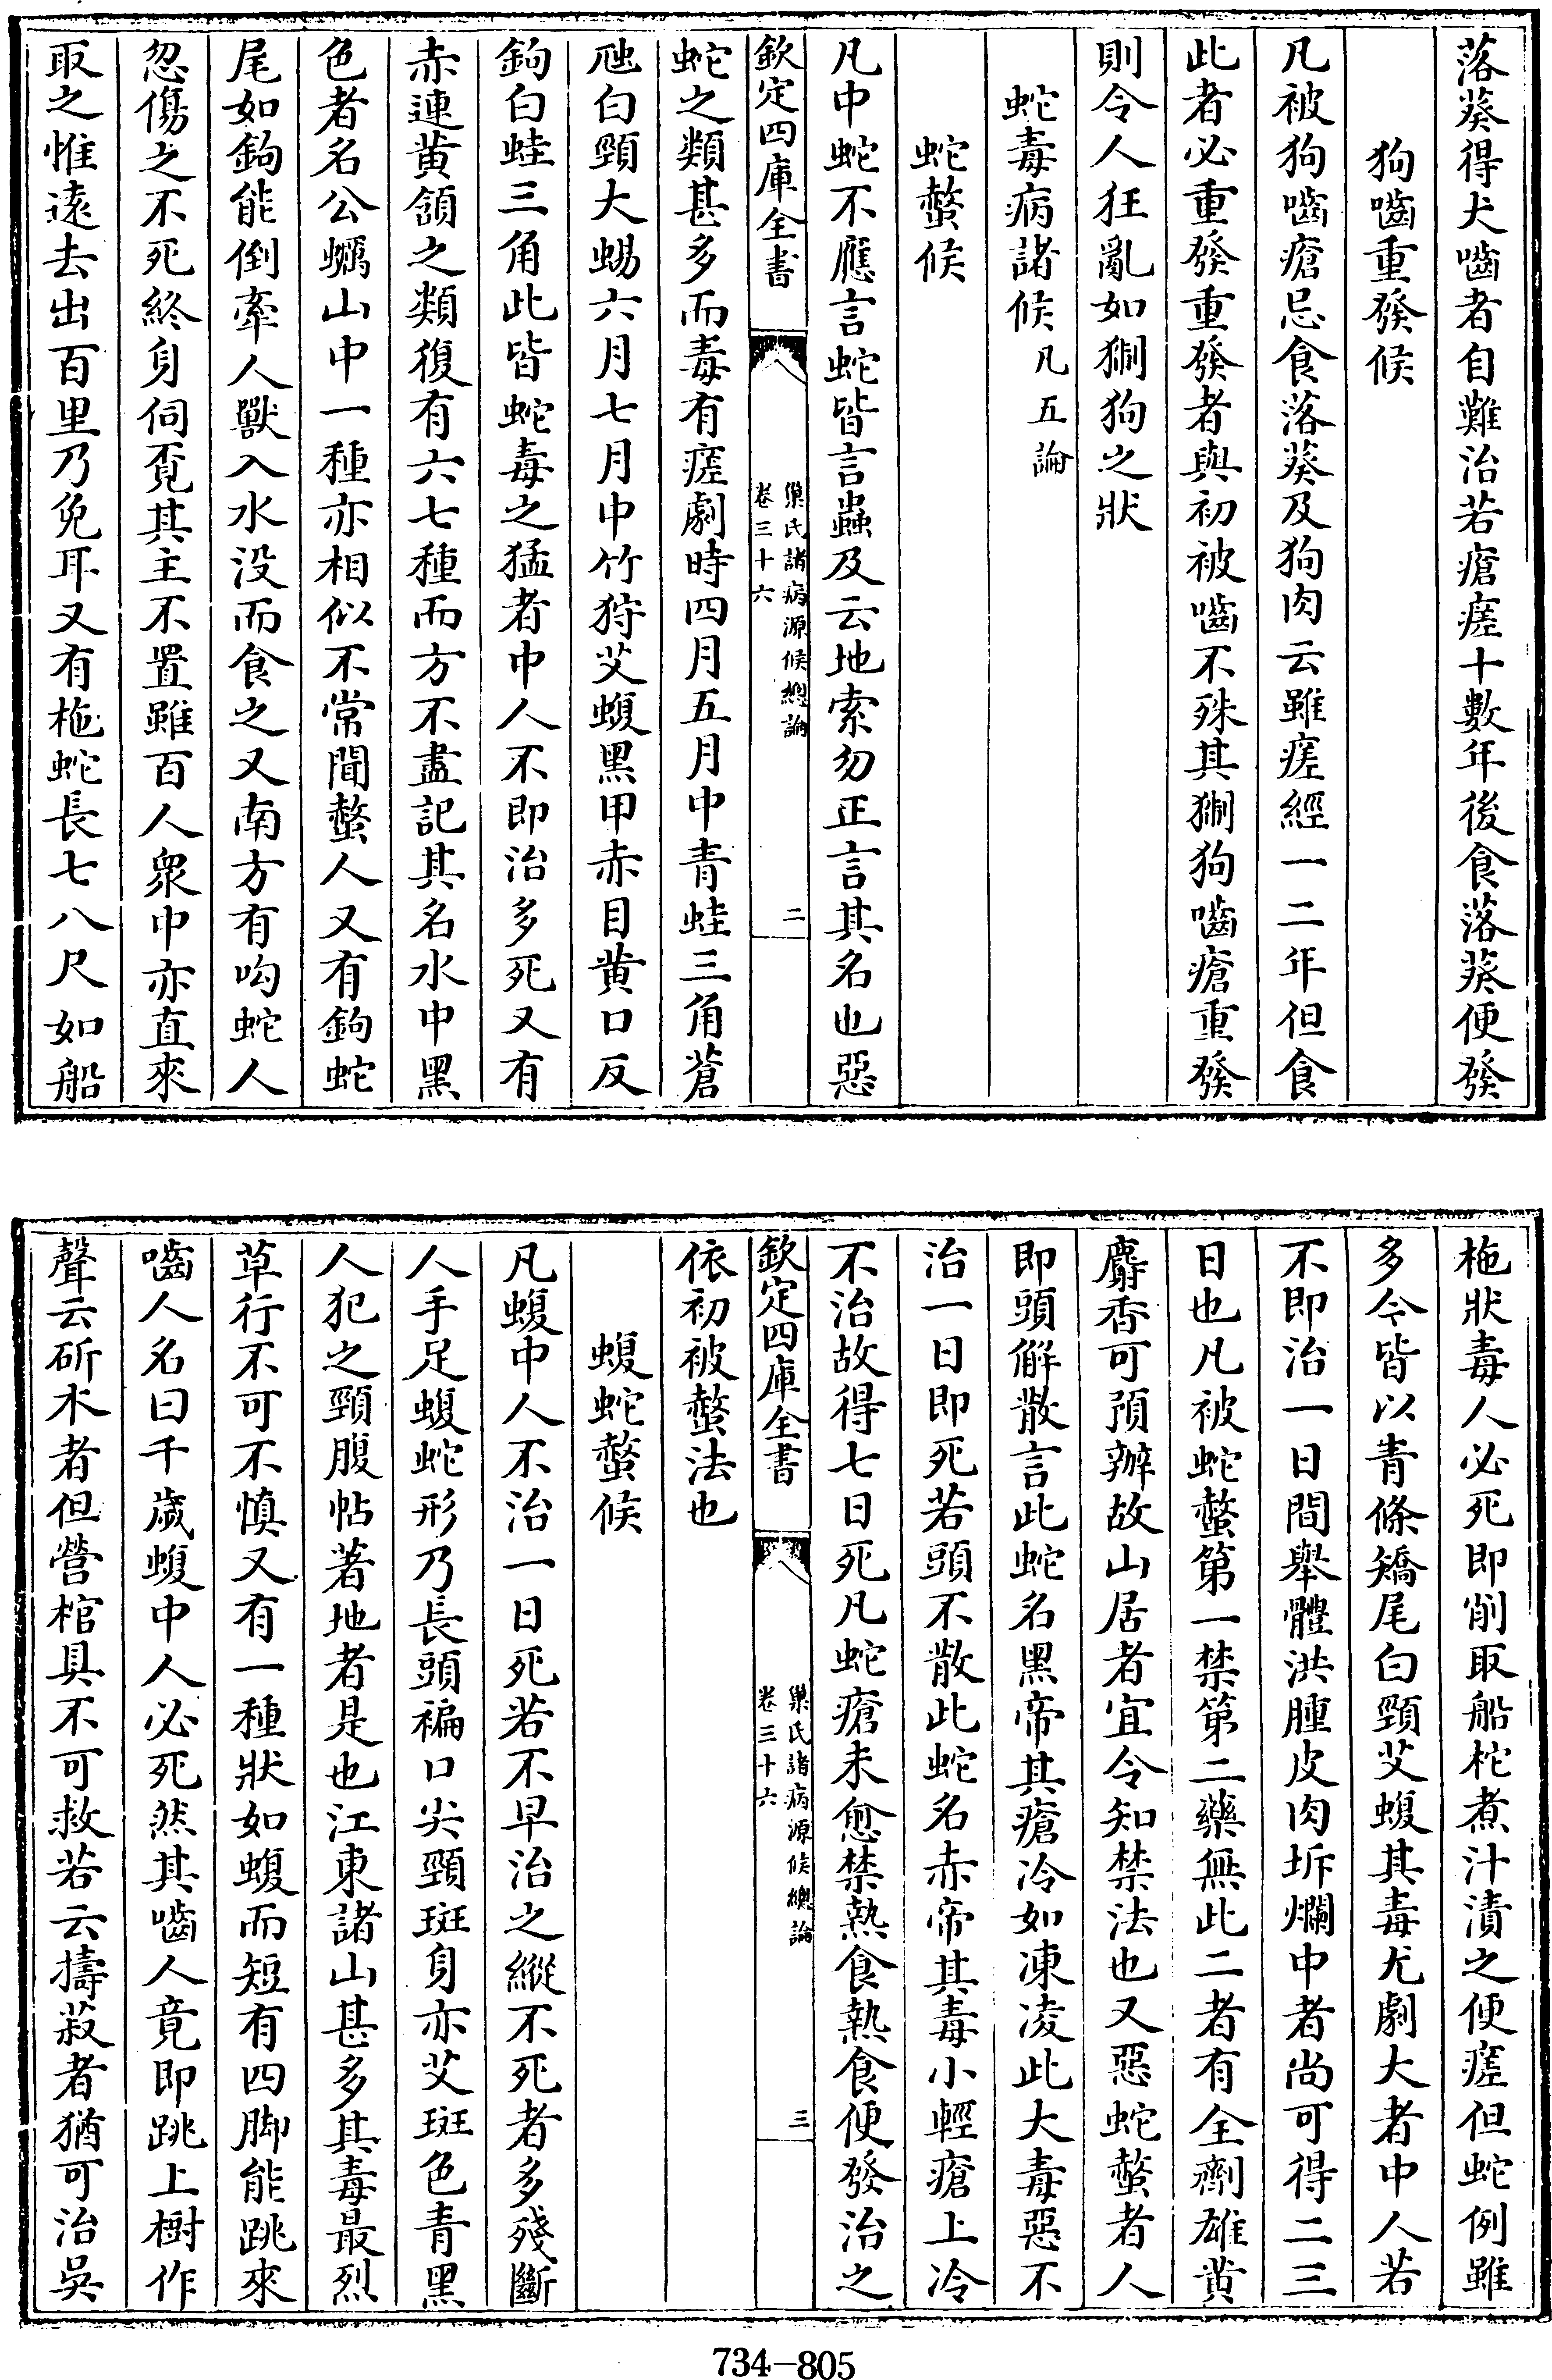 落葵得犬嚙者自難治若瘡瘥十數年後食落葵便發
狗嚙重發候
凡被狗嚙瘡忌食落葵及狗肉云雖瘥經一二年但食
此者必重發重發者與初被嚙不殊其猘狗嚙瘡重發
則令人狂亂如猘狗之狀
蛇毒病諸候凡五論
蛇螫候
凡中蛇不應言蛇皆言蟲及云地索勿正言其名也惡
欽定四庫全書
巢氏諸病源候總論
卷三十六
二
蛇之類甚多而毒有瘥劇時四月五月中青蛙三角蒼
虺白頸大蜴六月七月中竹狩艾蝮黑甲赤目黃口反
鉤白蛙三角此皆蛇毒之猛者中人不即治多死又有
赤連黃頷之類復有六七種而方不盡記其名水中黑
色者名公蠣山中一種亦相似不常聞螫人又有鉤蛇
尾如鉤能倒牽人獸入水沒而食之又南方有呴蛇人
忽傷之不死終身伺覓其主不置雖百人衆中亦直來
取之惟遠去出百里乃免耳又有柂蛇長七八尺如船
柂狀毒人必死即削取船柁煮汁漬之便瘥但蛇例雖
多今皆以青條矯尾白頸艾蝮其毒尤劇大者中人若
不即治一日間舉體洪腫皮肉坼爛中者尚可得二三
日也凡被蛇螫第一禁第二藥無此二者有全劑雄黃
麝香可預辦故山居者宜令知禁法也又惡蛇螫者人
即頭解散言此蛇名黑帝其瘡冷如凍凌此大毒惡不
治一日即死若頭不散此蛇名赤帝其毒小輕瘡上冷
不治故得七日死凡蛇瘡未愈禁熱食熱食便發治之
欽定四庫全書
巢氏諸病源候總論
卷三十六
三
依初被螫法也
蝮蛇螫候
凡蝮中人不治一日死若不早治之縱不死者多殘斷
人手足蝮蛇形乃長頭褊口尖頸斑身亦艾斑色青黑
人犯之頸腹帖著地者是也江東諸山甚多其毒最烈
草行不可不慎又有一種狀如蝮而短有四脚能跳來
嚙人名曰千歲蝮中人必死然其嚙人竟即跳上樹作
聲云斫木者但營棺具不可救若云擣菽者猶可治吳
734-805